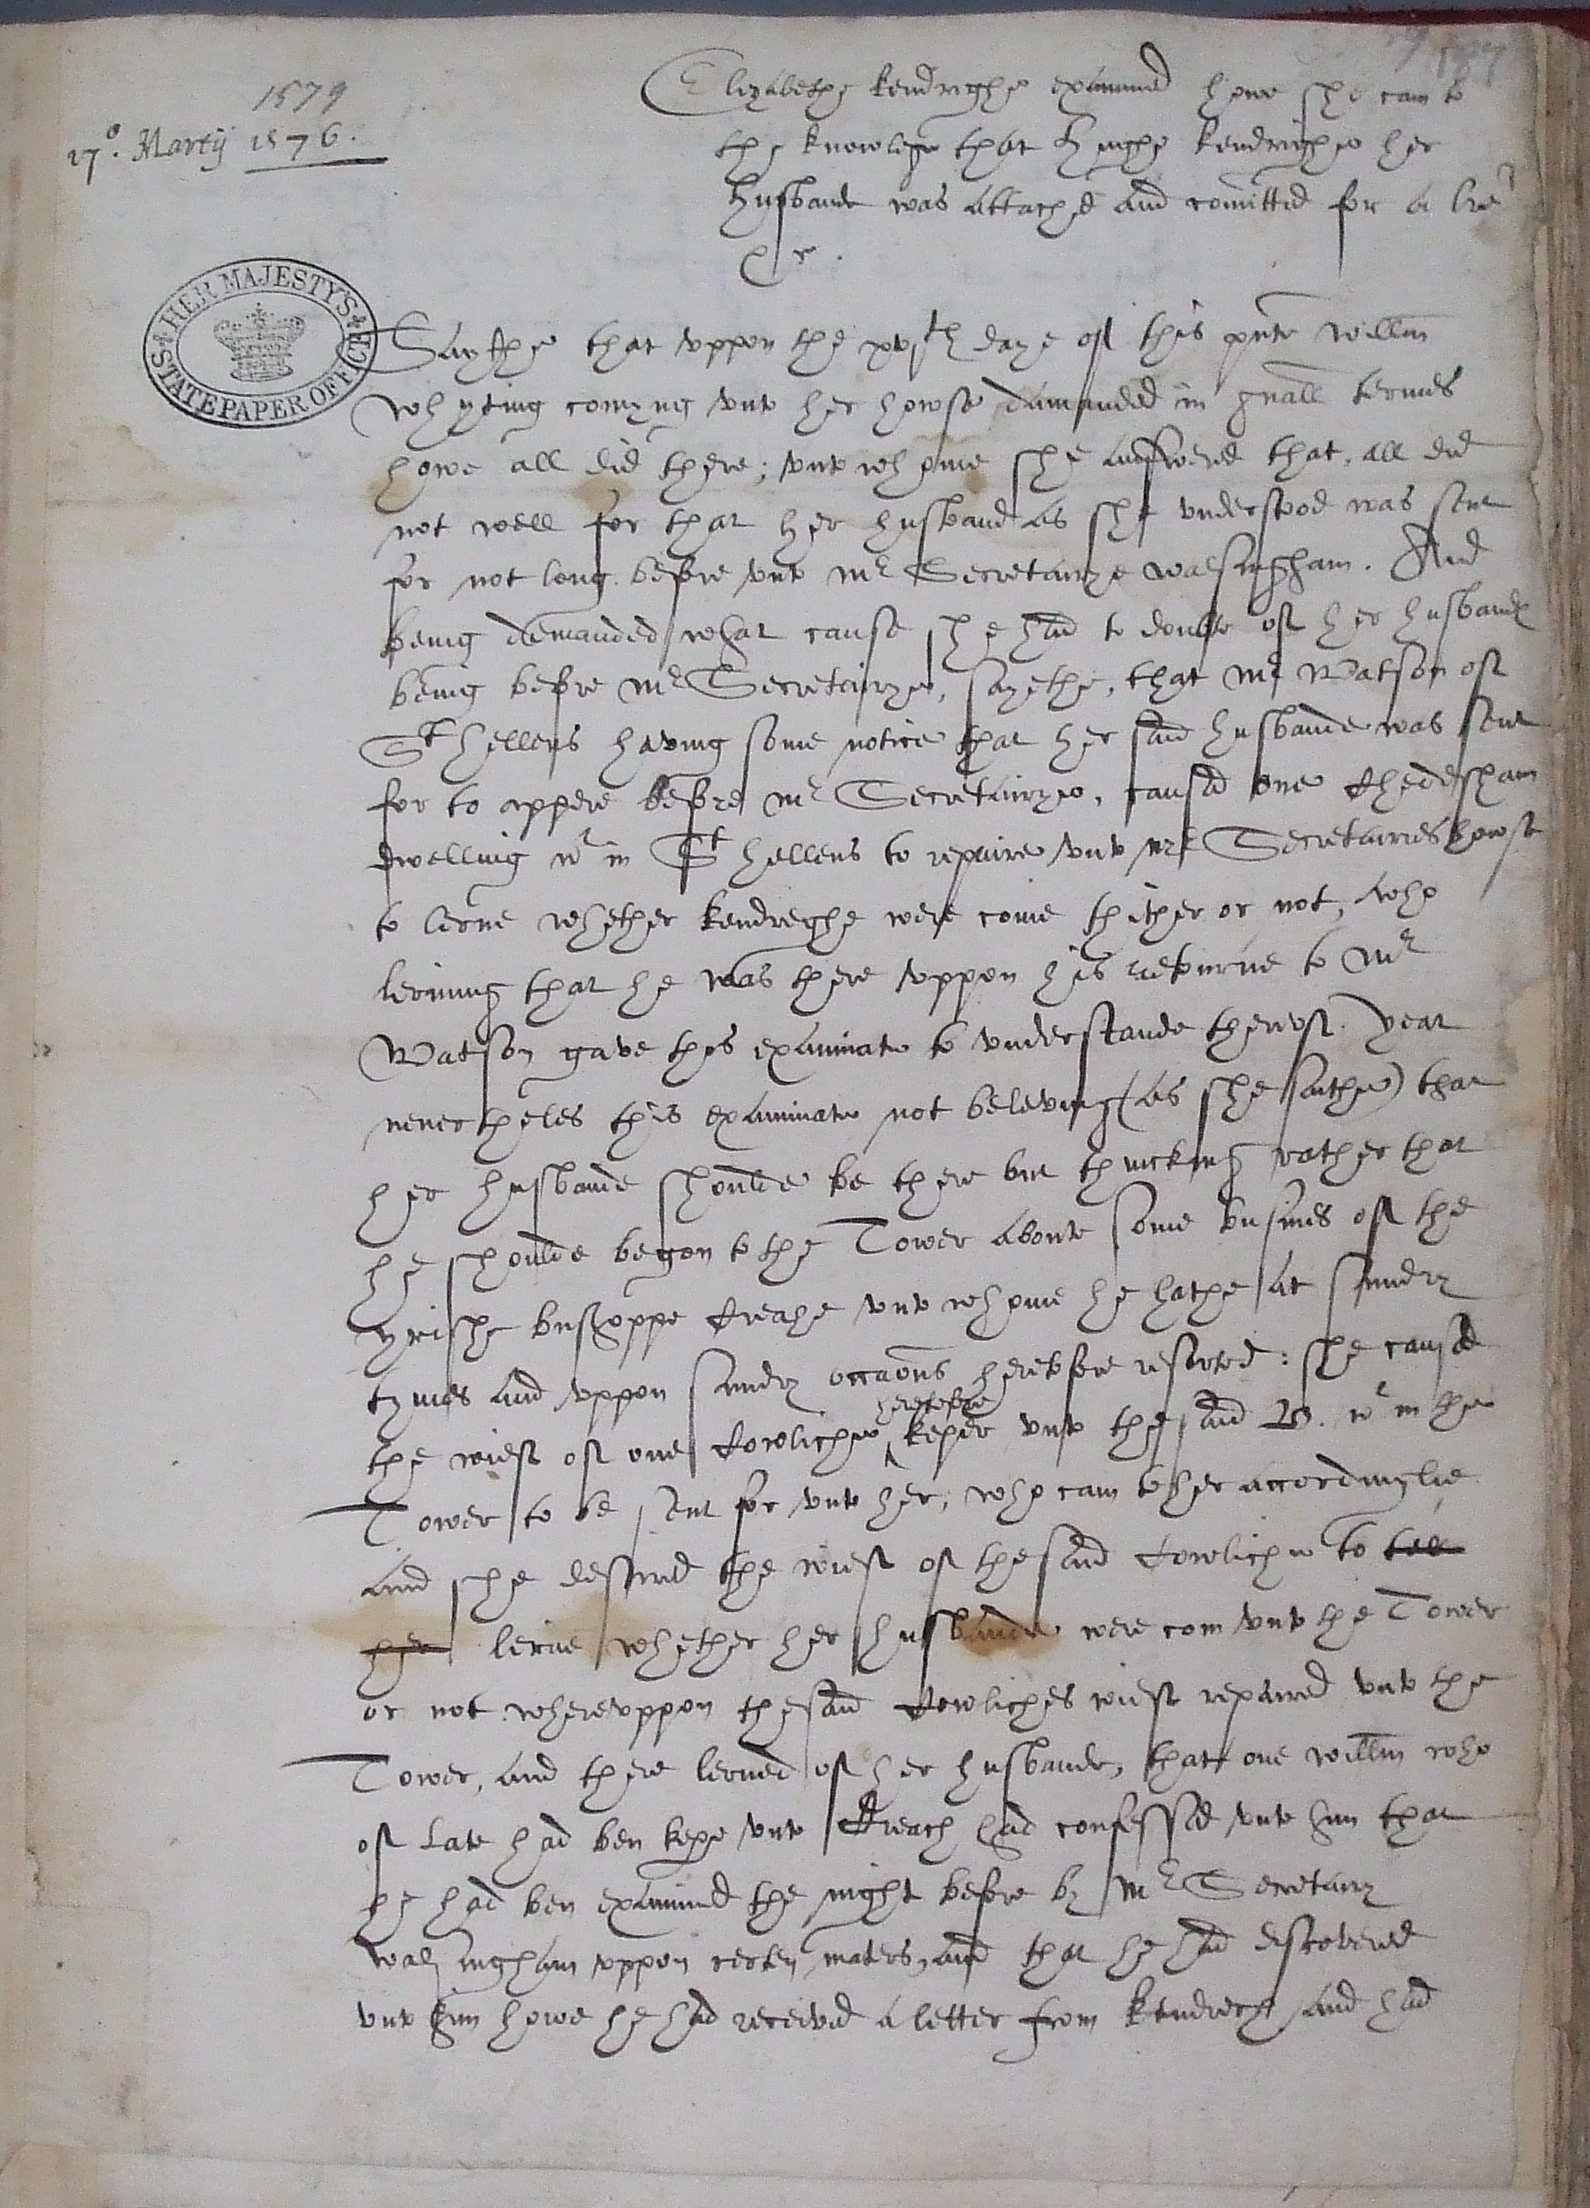 1579
17°. Martij 1576.
Elizabethe Kendrighe examined howe she cam to
the knowlege that Hughe Kendrighe her
husbande was attached and comitted for a lre
&c.
HER MAJESTY'S STATE PAPER OFFICE
Saythe that vppon the xvjth daye of this pnte Willm
Whyting comyng vnto her howse demanded in gnall termes
howe all did there; vnto whome she answered that, all did
not well for that her husband as she vnderstood was sent
for not long before vnto Mr Secretairye Walsingham. And
being demanded what cause she had to doubte of her husbands
being before Mr Secretairye, sayethe, that Mr Watson of
St Hellens having some notice that her said husbande was sent
for to appere before Mr Secretairye, caused one
dwelling wt in St Hellens to repaire vnto Mr Secretairies howse
to lerne whether Kendreghe were come thither or not, who
lerning that he was there vppon his retourne to Mr
Watson gave this examinate to vnderstande therof. Yeat
nevertheles this examinate not beleving (as she saithe) that
her husbande shoulde be there but thincking rather that
he shoulde be gon to the Tower aboute some busines of the
yrishe busshoppe Creaghe vnto whome he hathe at sundry
tymes and vppon sundry occaons heretofore resorted: she caused
the wief of one Rowliche heretofore keper vnto the said B. wt in the
Tower to be sent for vnto her, who cam to her accordinglie
and she desired the wief of the said Rowliche to tell
her lerne whether her husbande were com vnto the Tower
or not wherevppon the said Rowliches wief repaired vnto the
Tower, and there lerned of her husbande, that one Willm who
of late had ben keper vnto Creagh had confessed vnto him that
he had ben examined the night before by Mr Secretairy
Walsingham vppon certen maters, and that he had discovered
vnto him howe he had received a letter from Kendrech and had